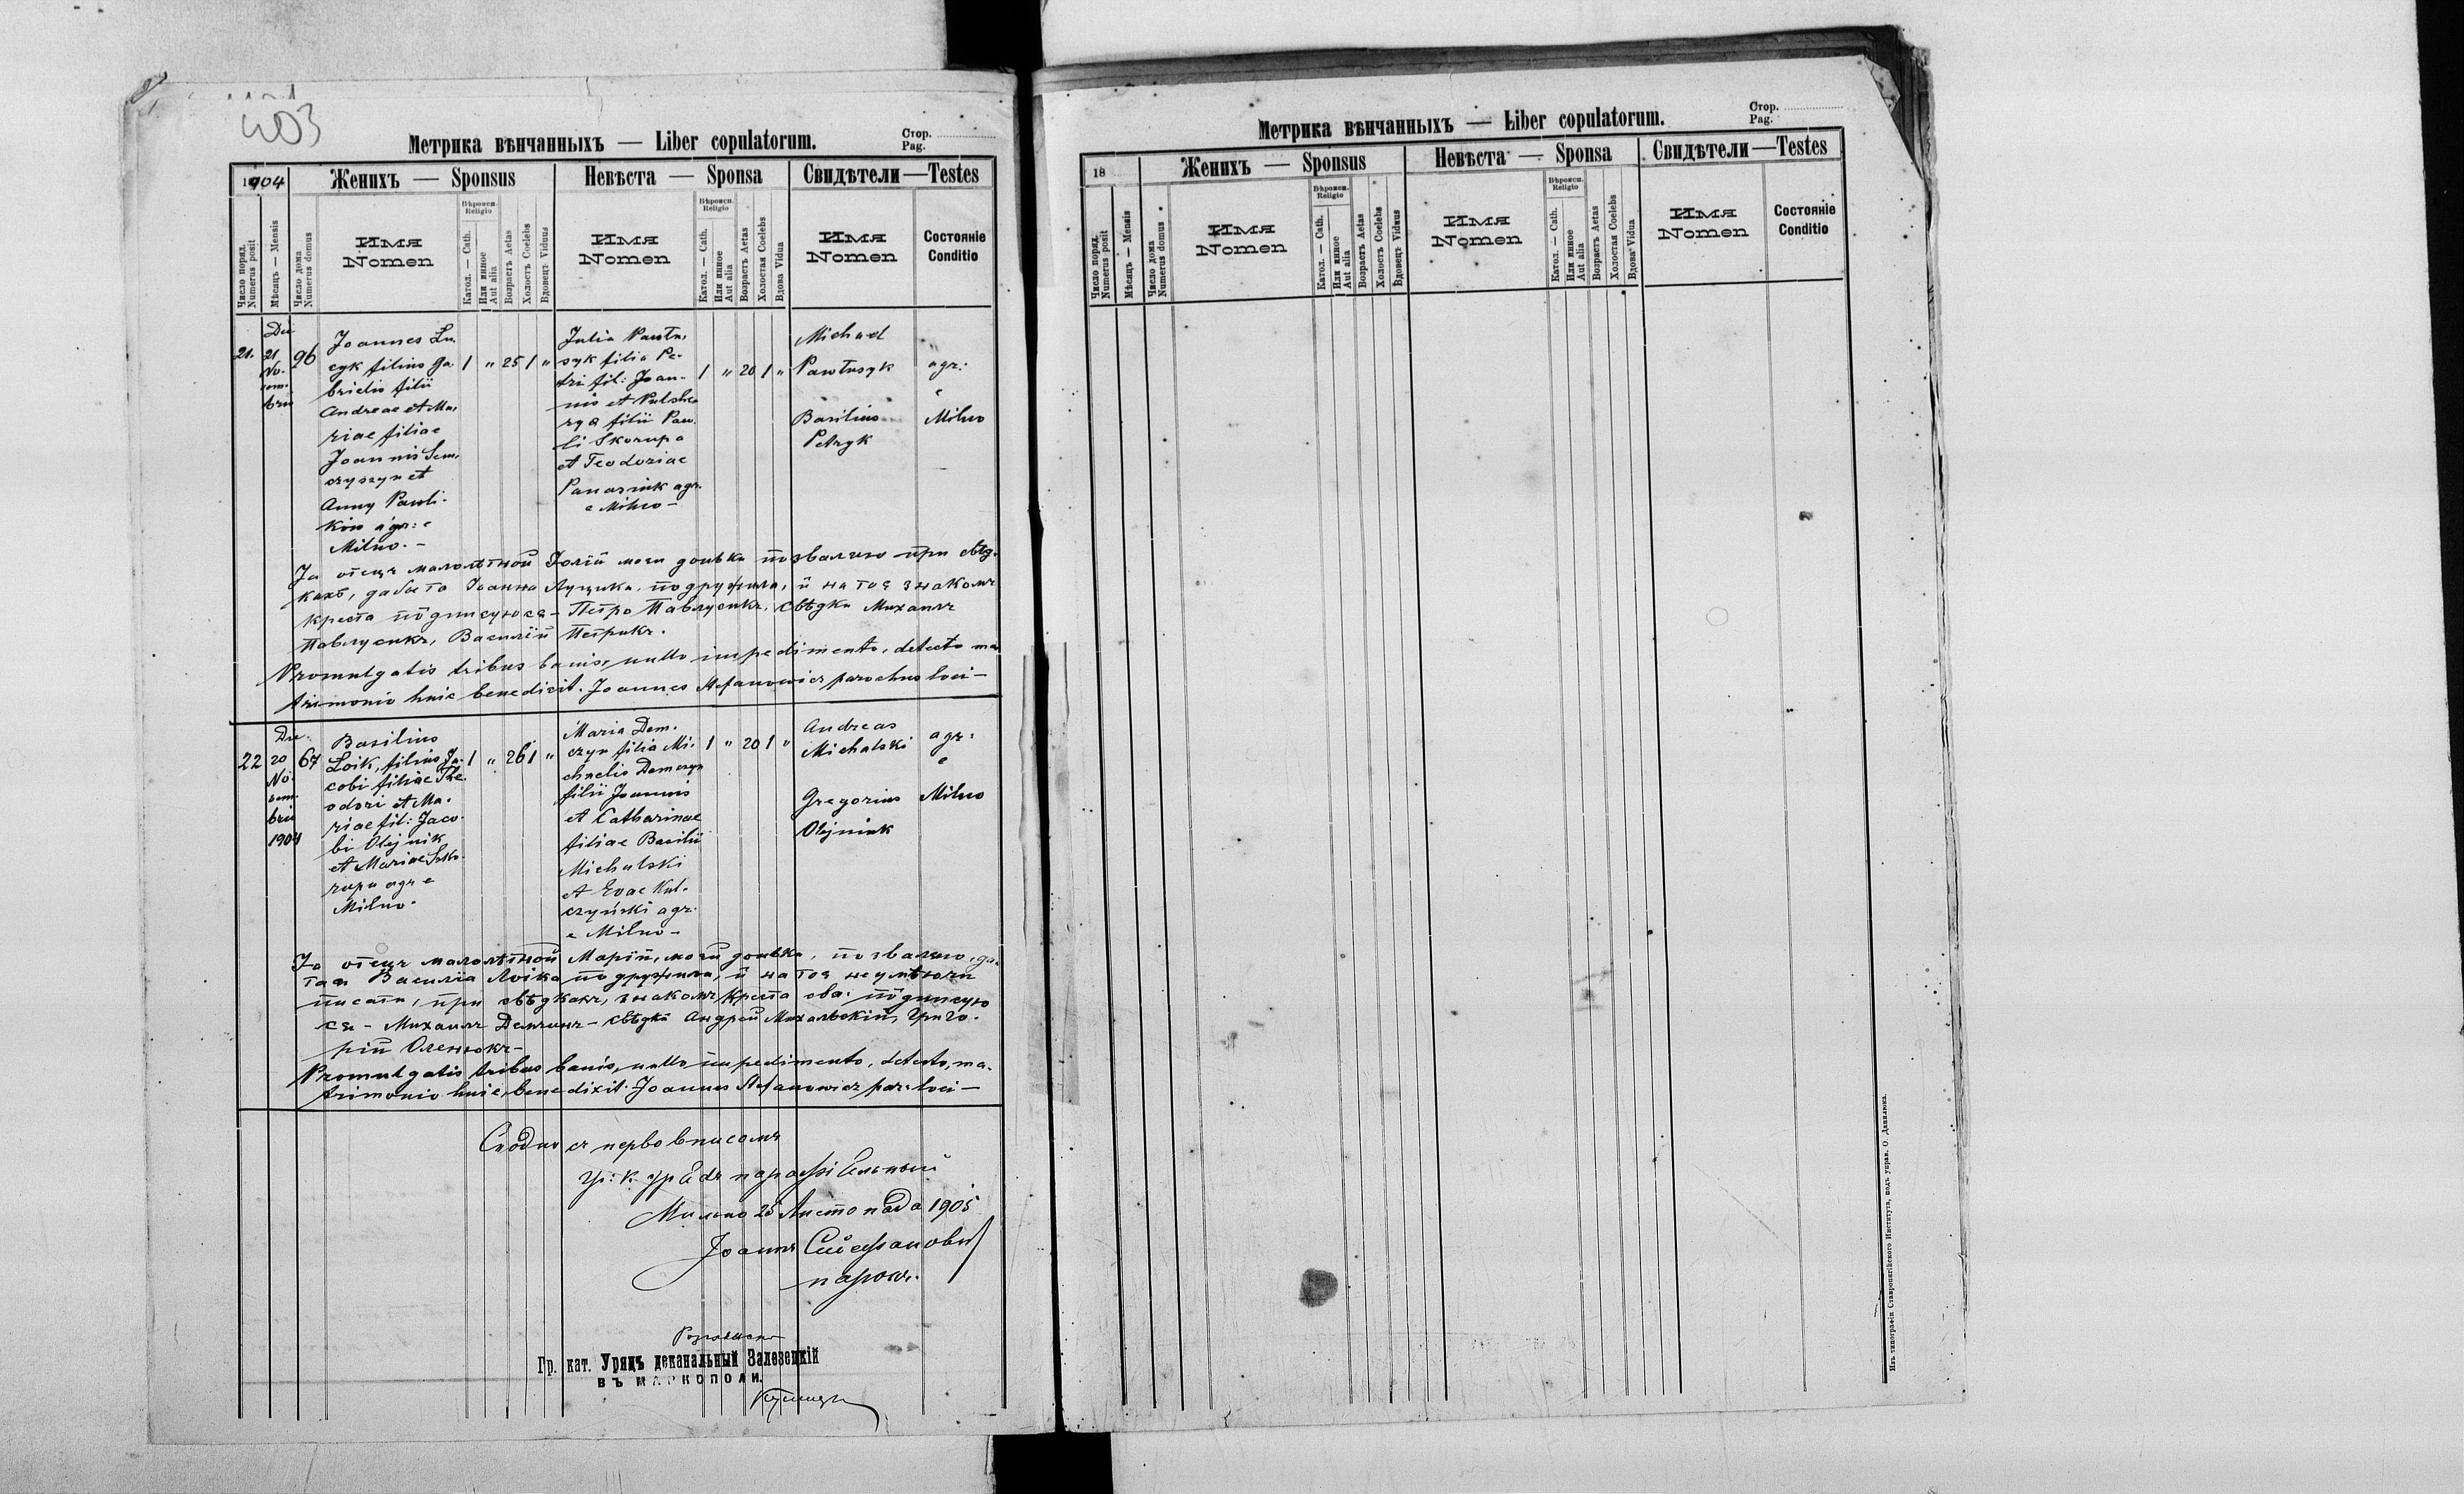 403
Метрика вѣнчанныхъ — Liber copulatorum.
Стор.
Pag.
1904
Женихъ — Sponsus
Невѣста — Sponsa
Свидѣтели — Testes
Число поряд.
Numerus posit
Мѣсяцъ — Mensis
Число дома
Numerus domus
Имя
Nomen
Вѣроисп.
Religio
Катол. — Cath.
Или инное
Aut alia
Возрастъ Aetas
Холостъ Coelebs
Вдовецъ Viduus
Имя
Nomen
Вѣроисп.
Religio
Катол. — Cath.
Или инное
Aut alia
Возрастъ Aetas
Холостая Coelebs
Вдова Vidua
Имя
Nomen
Состояніе
Conditio
21.
Die
21
No-
vem-
bris
96
Joannes Lu-
cyk filius Ga-
brielis filii
Andreae et Ma-
riae filiae
Joannis Sem-
czyszyn et
Anny Pawli-
kow agr: e
Milno. –
1 " 25 1 "
Julia Pawlu-
syk filia Pe-
tri fil: Joan-
nis et Pulshe-
rya filii Paw-
li Skorupa
et Teodoziae
Panasiuk agr.
e Milno –
1 " 20 1 "
Michael
Pawlusyk
Basilius
Petryk
agr:
e
Milno
Ja отецъ малолѣтной Юліи моеи доньки позваляю при свѣд-
кахъ, дабы та Іоанна Луцика подружила, и на тоє знакомъ
креста подписуюся – Петро Павлусикъ, свѣдки Михаилъ
Павлусикъ, Василій Петрикъ.
Promulgatis tribus banis, nullo impedimento, detecto ma-
trimonio huic benedixit. Joannes Stefanowicz parochus loci –
22
Die
20
No-
vem-
bris
1904
67
Basilius
Loik, filius Ja-
cobi filiae The-
odori et Ma-
riae fil: Jaco-
bi Olejnik
et Mariae Sko-
rupa agr e
Milno.
1 " 26 1 "
Maria Dem-
czyn filia Mi-
chaelis Demczyn
filii Joannis
et Catharinae
filiae Basilii
Michalski
et Evae Kul-
czyński agr.
e Milno –
1 " 20 1 "
Andreas
Michalski
Gregorius
Olejniuk
agr:
e
Milno
Ja отецъ малолѣтной Маріи, моеи доньки, позваляю, да-
тая Василія Лоіка подружила, и на тоє неумѣючи
писати, при свѣдкахъ, знакомъ креста подписую
ся – Михаилъ Демчинъ – свѣдки Андрей Михальскій, Григо-
рій Оленюкъ –
Promulgatis tribus banis, nullo impedimento, detecto, ma-
trimonio huic, benedixit. Joannes Stefanowicz par: loci –
Сходно съ первовписомъ
Гр: к. урядъ парафіяльный
Мильно 25 Листопада 1905
Іоаннъ Стефановичъ
парохъ.
Гр. кат. Урядъ деканальный Залозецкій
ВЪ МАРКОПОЛИ.
Метрика вѣнчанныхъ — Liber copulatorum.
Стор.
Pag.
18
Женихъ — Sponsus
Невѣста — Sponsa
Свидѣтели — Testes
Число поряд.
Numerus posit
Мѣсяцъ — Mensis
Число дома
Numerus domus
Имя
Nomen
Вѣроисп.
Religio
Катол. — Cath.
Или инное
Aut alia
Возрастъ Aetas
Холостъ Coelebs
Вдовецъ Viduus
Имя
Nomen
Вѣроисп.
Religio
Катол. — Cath.
Или инное
Aut alia
Возрастъ Aetas
Холостая Coelebs
Вдова Vidua
Имя
Nomen
Состояніе
Conditio
Изъ типографіи Ставропигійского Института, подъ управ. О. Данилюка.